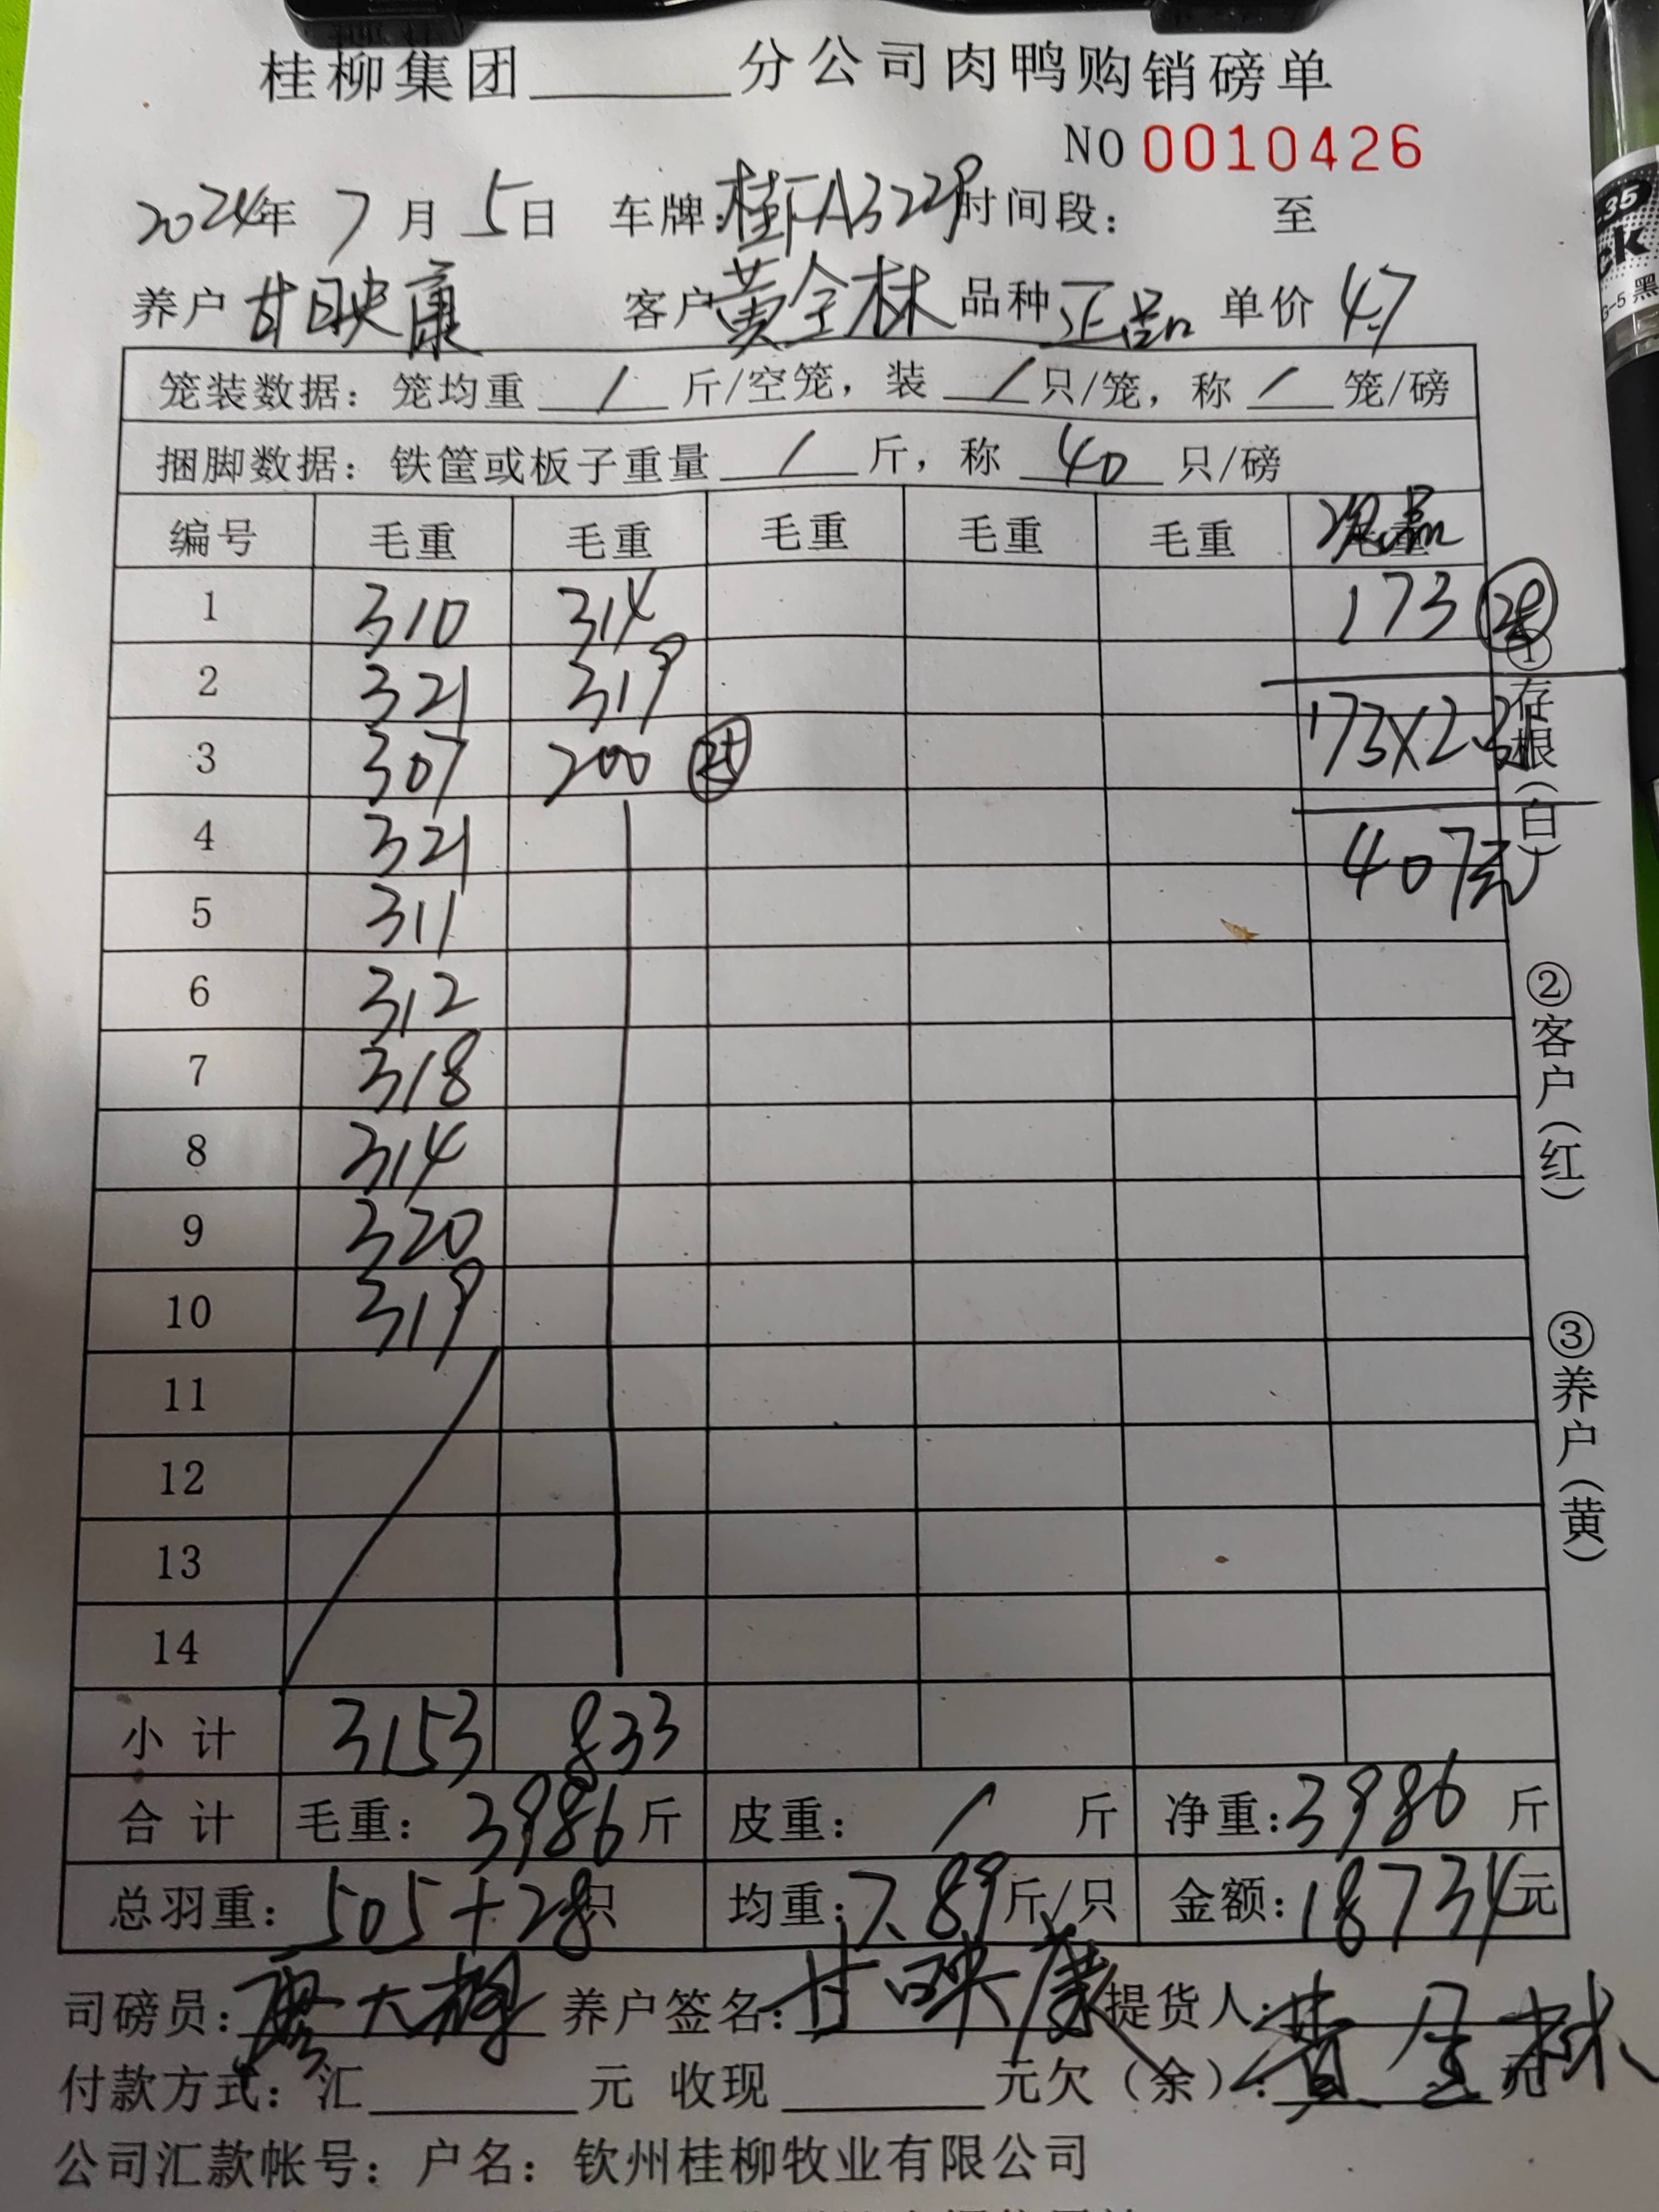 桂柳集团______分公司肉鸭购销磅单
NO 0010426
2024年 7月 5日 车牌：桂FA3229 时间段： 至
养户 甘映康 客户 黄全林 品种 正品 单价 4.7
笼装数据：笼均重 / 斤/空笼，装 / 只/笼，称 / 笼/磅
捆脚数据：铁筐或板子重量 / 斤，称 40 只/磅
编号 毛重 毛重 毛重 毛重 毛重 次品
1 310 314 173 28
2 321 319 173×2.35
3 307 200 25
4 321 407元
5 311
6 312
7 318
8 314
9 320
10 319
11
12
13
14
小计 3153 833
合计 毛重：3986斤 皮重：/ 斤 净重：3986 斤
总羽重：505+28只 均重：7.89斤/只 金额：18734元
司磅员： 养户签名：甘映康 提货人：黄全林
付款方式：汇______元 收现______元欠（余）：______元
公司汇款帐号：户名：钦州桂柳牧业有限公司
①存根（白）
②客户（红）
③养户（黄）
.35
CK
G-5 黑